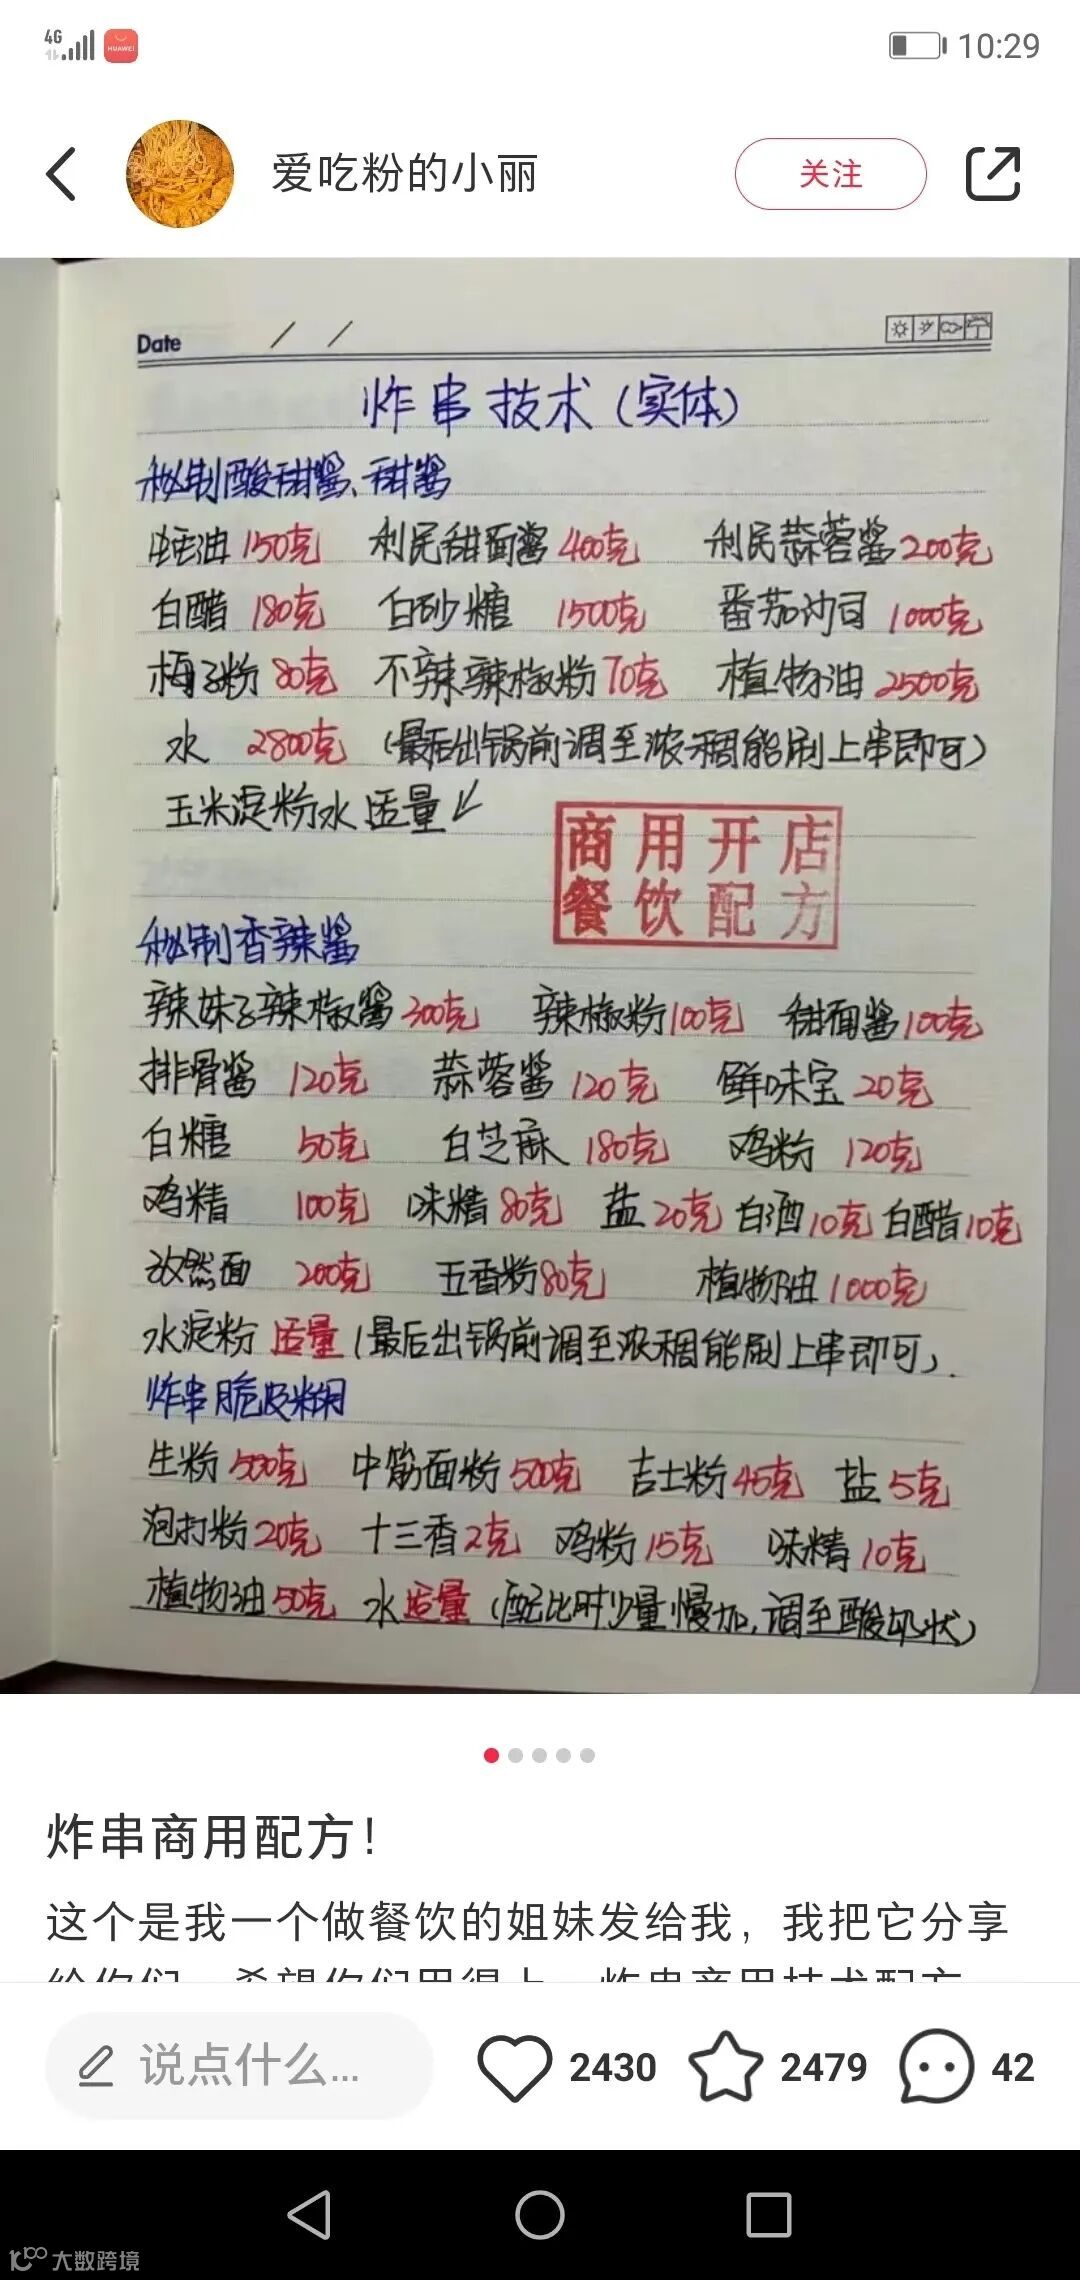 4G
HUAWEI
10:29
爱吃粉的小丽
关注
Date / /
炸串技术(实体)
秘制酸甜酱、甜酱
蚝油150克 利民甜面酱400克 利民蒜蓉酱200克
白醋 180克 白砂糖 1500克 番茄沙司 1000克
梅子粉 80克 不辣辣椒粉70克 植物油 2500克
水 2800克 (最后出锅前调至浓稠能刷上串即可)
玉米淀粉水 适量↙
商用开店
餐饮配方
秘制香辣酱
辣妹子辣椒酱300克 辣椒粉100克 甜面酱100克
排骨酱 120克 蒜蓉酱 120克 鲜味宝 20克
白糖 50克 白芝麻 180克 鸡粉 120克
鸡精 100克 味精 80克 盐 20克 白酒10克 白醋10克
孜然面 200克 五香粉80克 植物油1000克
水淀粉 适量(最后出锅前调至浓稠能刷上串即可)
炸串脆皮糊
生粉500克 中筋面粉500克 吉士粉45克 盐5克
泡打粉20克 十三香2克 鸡粉15克 味精10克
植物油50克 水适量 (配比时少量慢加,调至酸奶状)
炸串商用配方!
这个是我一个做餐饮的姐妹发给我，我把它分享
说点什么...
2430
2479
42
大数跨境